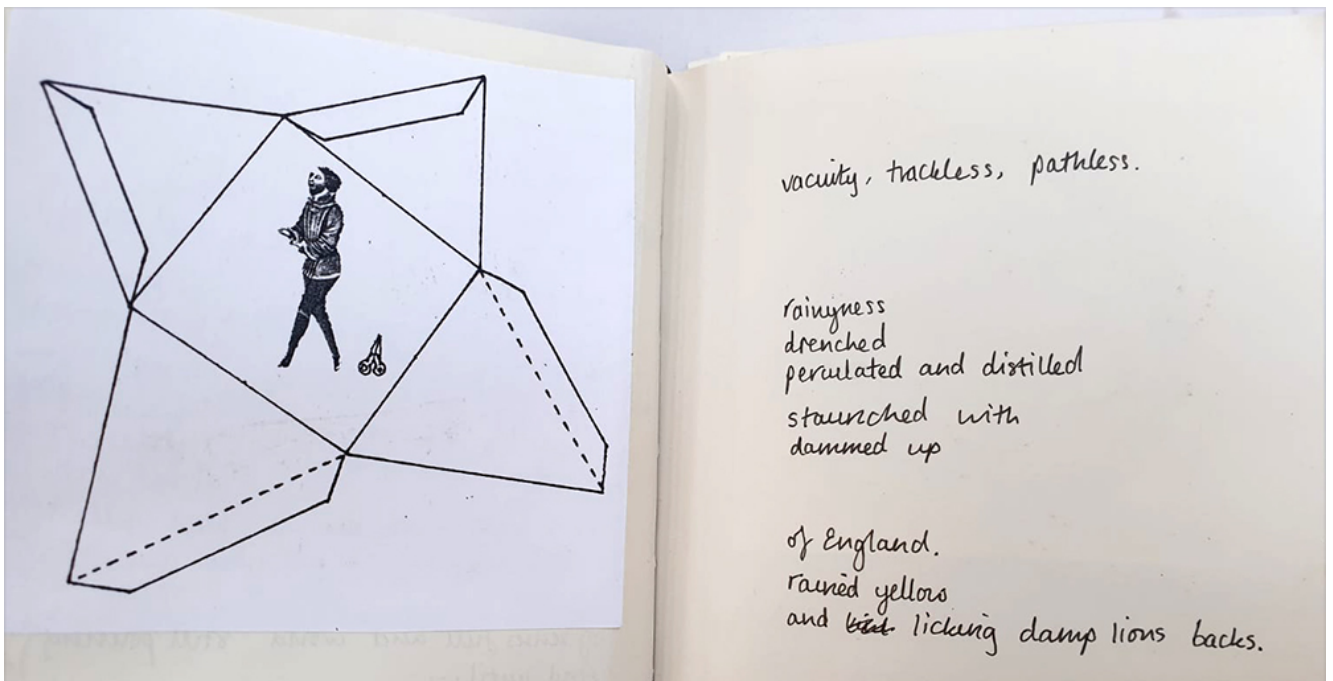 vacuity, trackless, pathless.
rainyness
drenched
perculated and distilled
staunched with
dammed up
of England.
rained yellow
and licking damp lions backs.